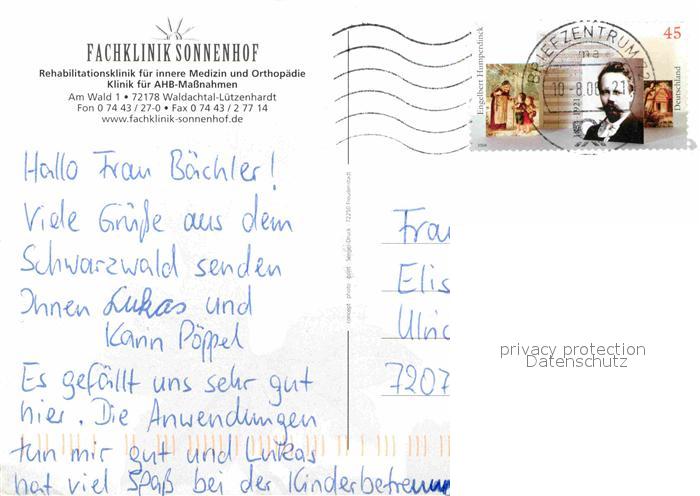 FACHKLINIK SONNENHOF
Rehabilitationsklinik für innere Medizin und Orthopädie
Klinik für AHB-Maßnahmen
Am Wald 1 • 72178 Waldachtal-Lützenhardt
Fon 0 74 43 / 27-0 • Fax 0 74 43 / 2 77 14
www.fachklinik-sonnenhof.de
Engelbert Humperdinck
1854-1921
45
Deutschland
BRIEFZENTRUM
Hallo Frau Bächler!
Viele Grüße aus dem
Schwarzwald senden
Ihnen Lukas und
Karin Pöppel
Es gefällt uns sehr gut
hier. Die Anwendungen
tun mir gut und Lukas
hat viel Spaß bei der Kinderbetreuung
72250 Freudenstadt
Frau
Elis
Ulric
7207
privacy protection
Datenschutz